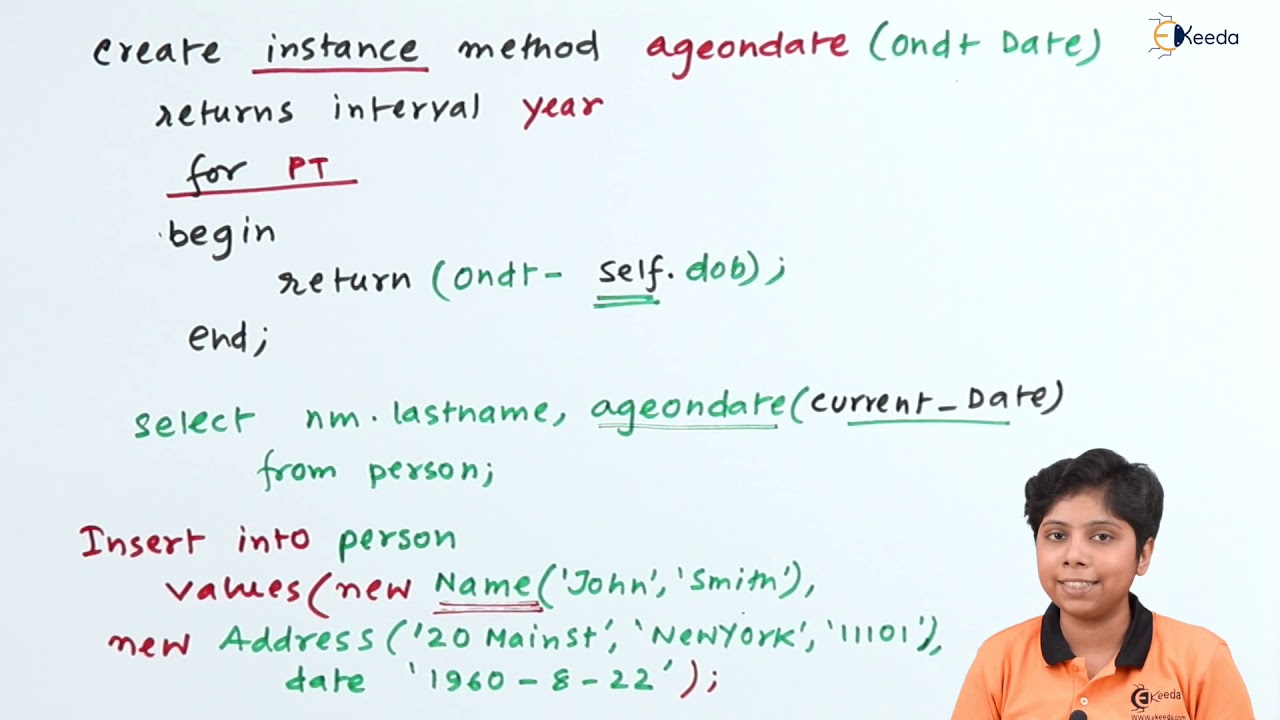 create instance method ageondate (ondt Date)
EKeeda
returns interval year
for PT
begin
return (ondt- self.dob);
end;
select nm.lastname, ageondate(current_Date)
from person;
Insert into person
values(new Name('John', 'Smith'),
new Address ('20 Mainst', 'NewYork', '11101'),
date '1960-8-22');
EKeeda
www.ekeeda.com